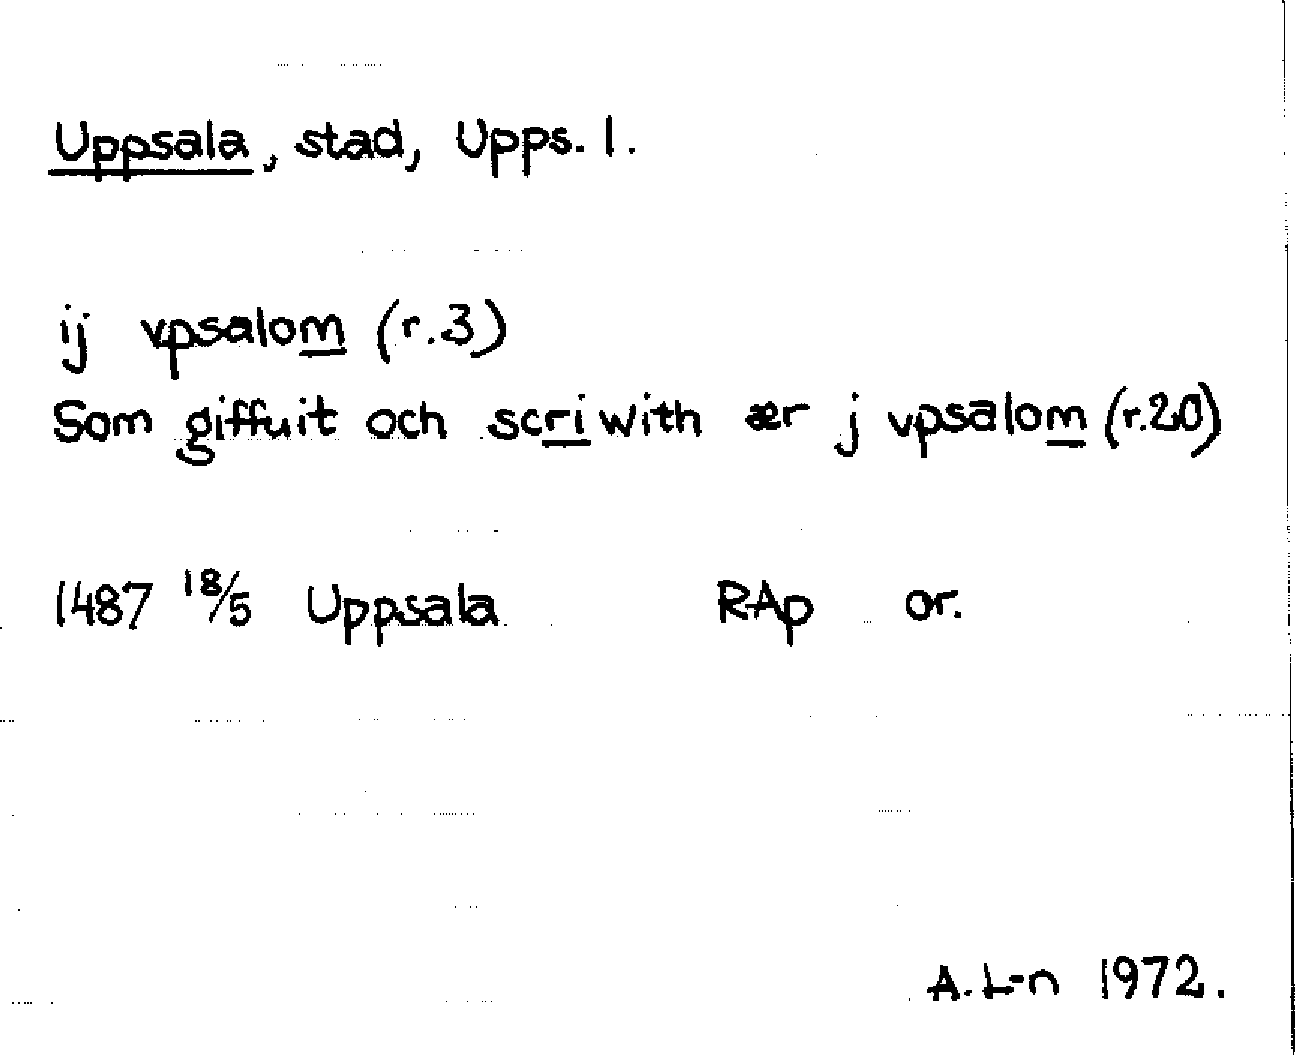 Uppsala, stad, Upps. l.
ij vpsalom (r.3)
Som giffuit och scriwith ær j vpsalom (r.20)
1487 18/5 Uppsala RAp or.
A. L-n 1972.